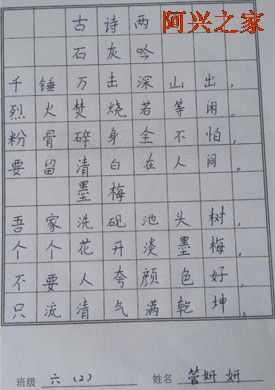 阿兴之家
古诗两
石灰吟
千锤万击深山出，
烈火焚烧若等闲。
粉骨碎身全不怕，
要留清白在人间。
墨梅
吾家洗砚池头树，
个个花开淡墨梅，
不要人夸颜色好，
只流清气满乾坤，
班级 六（2） 姓名 管妍妍